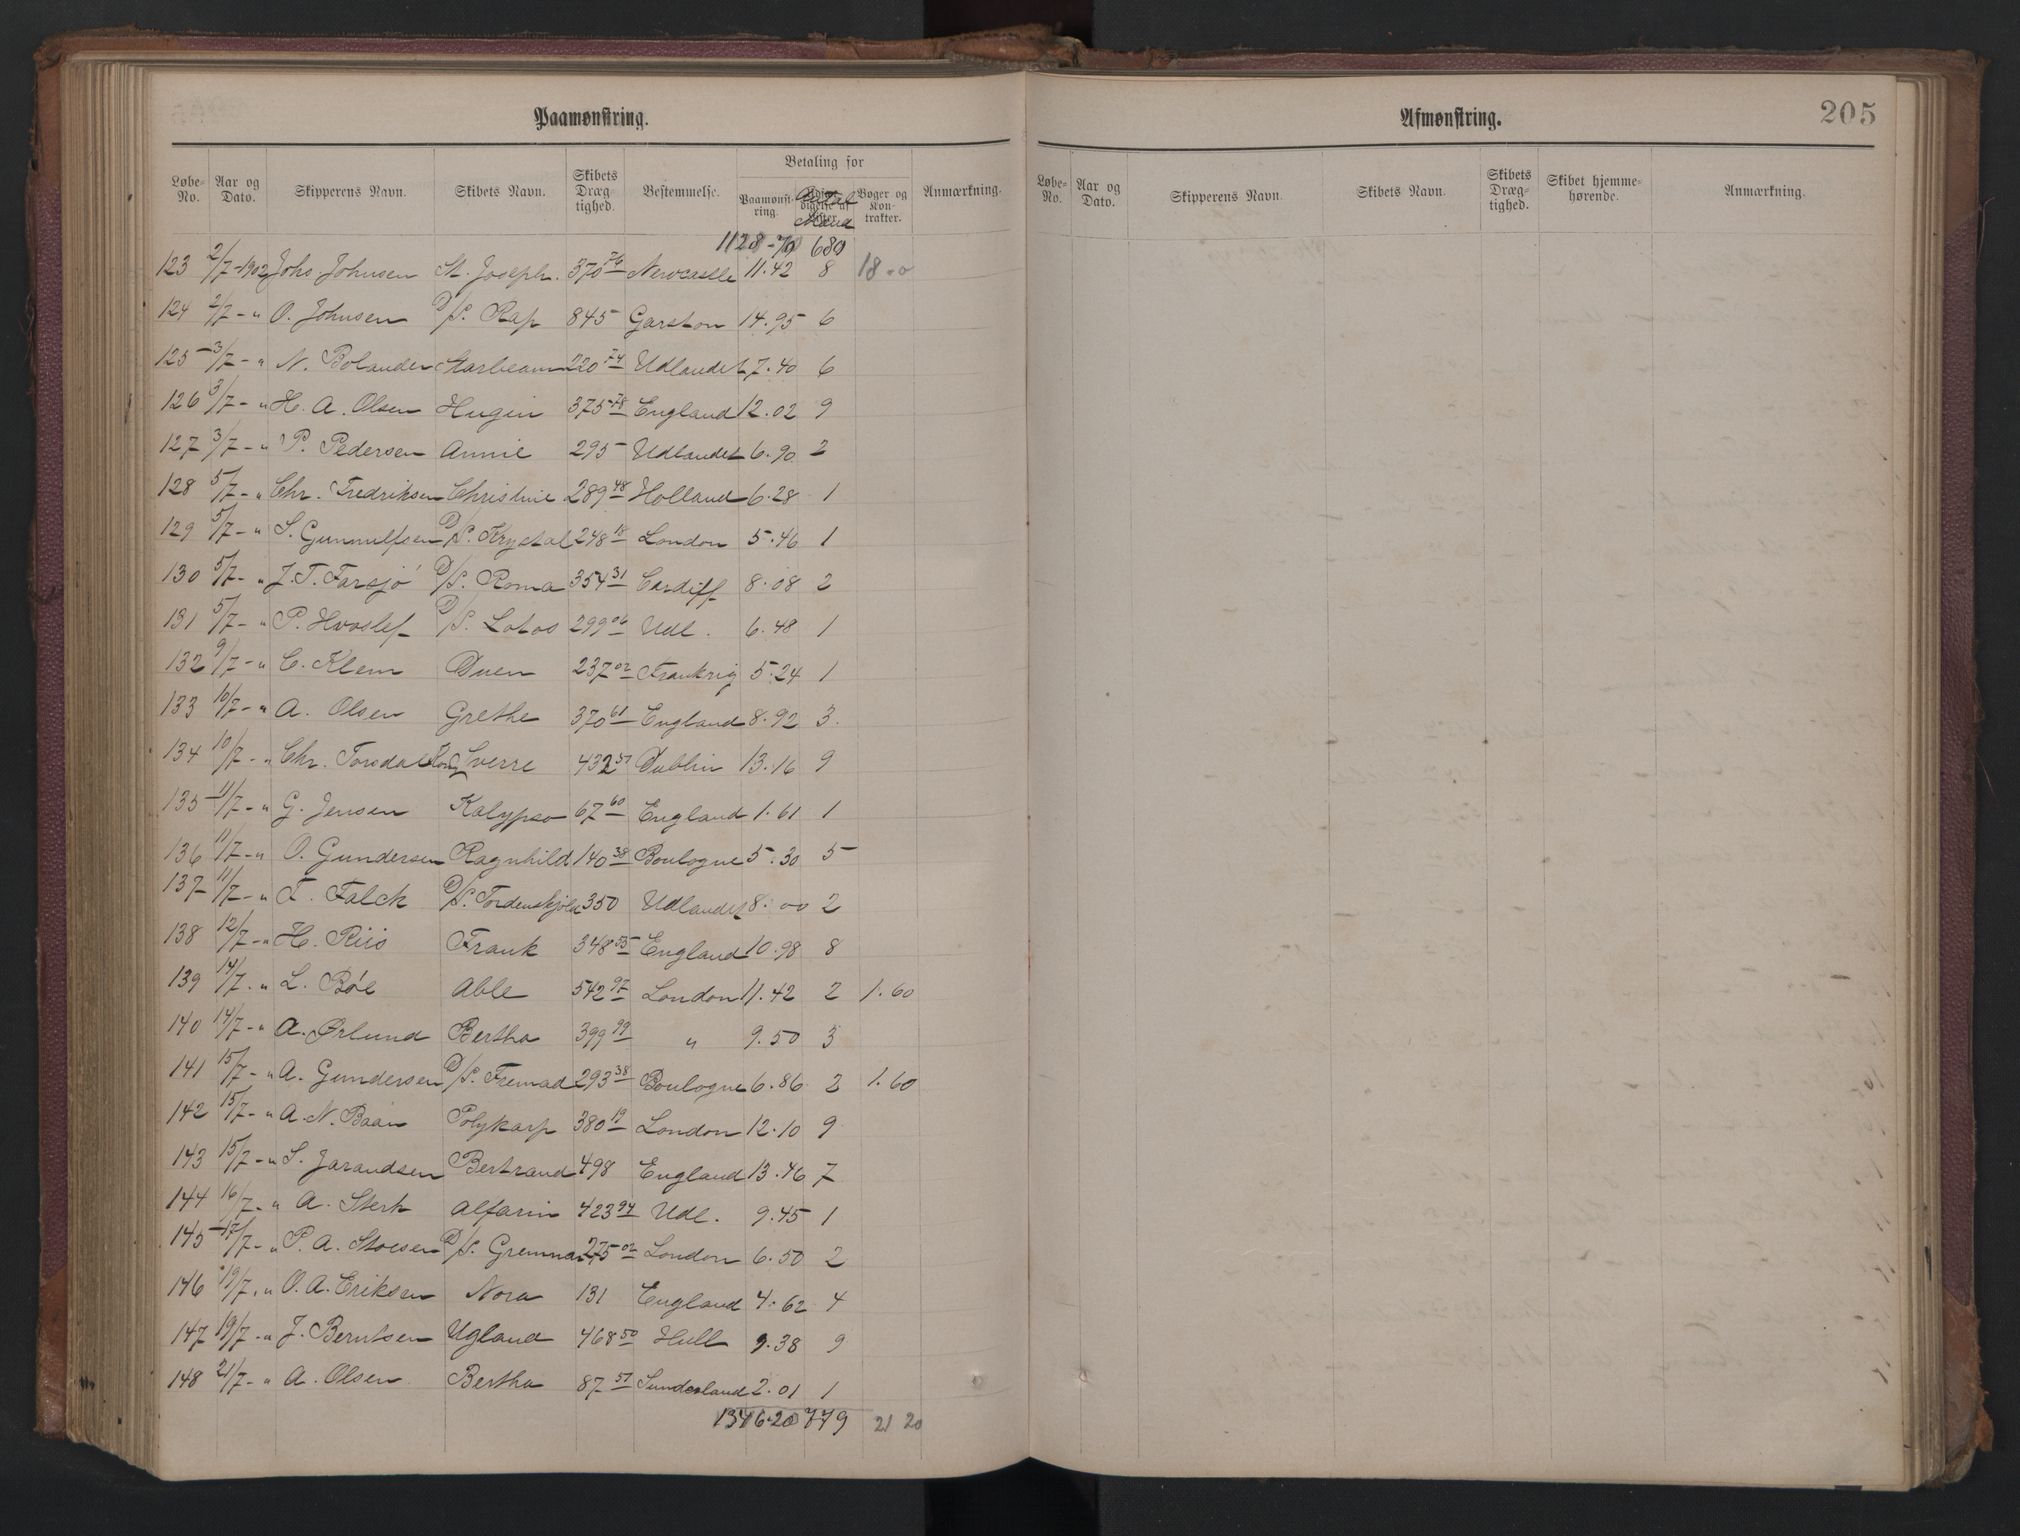 Paamønstring.
Løbe-No. Aar og Dato. Skipperens Navn. Skibets Navn. Skibets Dræg-tighed. Bestemmelse. Betaling for Paamønst-ring. Antal Mand Bøger og Kon-trakter. Anmærkning.
1128-70 680
123 2/7-1902 Johs. Johnsen St. Joseph. 370 76 Newcastle 11.42 8 18.00
124 2/7 - " O. Johnsen D/S. Rap 845 Garston 14.95 6
125 3/7 - " N. Bolander Starbeam 220 74 Udlandet 7.40 6
126 3/7 - " H. A. Olsen Hugin 375 78 England 12.02 9
127 3/7 - " P. Pedersen Annie 295 Udlandet 6.90 2
128 5/7 - " Chr. Fredriksen Christine 289 48 Holland 6.28 1
129 5/7 - " S. Gunnulfsen D/S. Krystal 248 18 London 5.46 1
130 5/7 - " J. T. Farsjö D/S. Roma 354 31 Cardiff 8.08 2
131 5/7 - " P. Hvoslef D/S. Lotos 299 06 Udl. 6.48 1
132 9/7 - " C. Klem Duen 237 02 Frankrig 5.24 1
133 10/7 - " A. Olsen Grethe 370 61 England 8.92 3.
134 10/7 - " Chr. Torsdal Kong Sverre 432 51 Dublin 13.16 9
135 11/7 - " G. Jensen Kalypso 67 60 England 1.61 1
136 11/7 - " O. Gundersen Ragnhild 140 38 Boulogne 5.30 5
137 11/7 - " F. Falck D/S. Tordenskjold 350 Udlandet 8.00 2
138 12/7 - " H. Riis Frank 348 55 England 10.98 8
139 14/7 - " L. Bóe Able 542 97 London 11.42 2 1.60
140 14/7 - " A. Ørlund Bertha 399 99 " 9.50 3
141 15/7 - " A. Gundersen D/S. Fremad 293 38 Boulogne 6.86 2 1.60
142 15/7 - " A. N. Baan Polykarp 380 19 London 12.10 9
143 15/7 - " S. Jarandsen Bertrand 498 England 13.46 7
144 16/7 - " A. Sterk Alfarin 423 94 Udl. 9.45 1
145 17/7 - " P. A. Stoesen D/S. Gremnar 275 02 London 6.50 2
146 19/7 - " O. A. Eriksen Nora 131 England 4.62 4
147 19/7 - " J. Berntsen Ugland 468 50 Hull 9.38 9
148 21/7 - " A. Olsen Bertha 87 51 Sunderland 2.01 1
1346.20 779 21 20
Afmønstring. 205
Løbe-No. Aar og Dato. Skipperens Navn. Skibets Navn. Skibets Dræg-tighed. Skibet hjemme-hørende. Anmærkning.